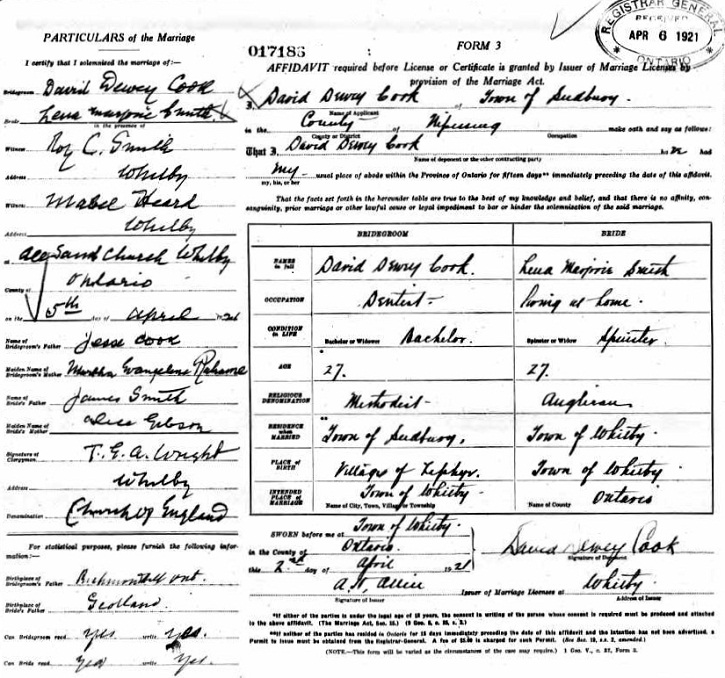 REGISTRAR GENERAL
RECEIVED
APR 6 1921
ONTARIO
PARTICULARS of the Marriage
I certify that I solemnized the marriage of:—
Bridegroom David Dewey Cook
Bride Lena Marjorie Smith
in the presence of
Witness Roy C. Smith
Address Whitby
Witness Mabel Heard
Whitby
Address
at All Saints Church Whitby
County of Ontario
on the 5th day of April 1921
Name of Bridegroom's Father Jesse Cook
Maiden Name of Bridegroom's Mother Martha Evangeline
Name of Bride's Father James Smith
Maiden Name of Bride's Mother Gibson
Signature of Clergyman T. G. A. Wright
Address Whitby
Denomination Church of England
For statistical purposes, please furnish the following information:—
Birthplace of Bridegroom's Father Richmond Hill Ont.
Birthplace of Bride's Father Scotland
Can Bridegroom read Yes write Yes.
Can Bride read Yes write Yes.
017186
FORM 3
AFFIDAVIT required before License or Certificate is granted by Issuer of Marriage Licenses by
provision of the Marriage Act.
I, David Dewey Cook of Town of Sudbury.
Name of Applicant
in the County of Nipissing make oath and say as follows:
County or District Occupation
That I, David Dewey Cook had
Name of deponent or the other contracting party
my usual place of abode within the Province of Ontario for fifteen days** immediately preceding the date of this affidavit.
my, his, or her
That the facts set forth in the hereunder table are true to the best of my knowledge and belief, and that there is no affinity, consanguinity, prior marriage or other lawful cause or legal impediment to bar or hinder the solemnization of the said marriage.
BRIDEGROOM BRIDE
NAMES in full David Dewey Cook Lena Marjorie Smith
OCCUPATION Dentist Living at home.
CONDITION in LIFE Bachelor or Widower Bachelor. Spinster or Widow Spinster.
AGE * 27. 27.
RELIGIOUS DENOMINATION Methodist Anglican
RESIDENCE when MARRIED ** Town of Sudbury, Town of Whitby
PLACE of BIRTH Village of Zephyr. Town of Whitby
INTENDED PLACE of MARRIAGE Town of Whitby Ontario
Name of City, Town, Village or Township Name of County
SWORN before me at Town of Whitby
in the County of Ontario.
this 2nd day of April 1921
David Dewey Cook
Signature of Deponent
A. W. Allin Issuer of Marriage Licenses at Whitby
Signature of Issuer Address of Issuer
*If either of the parties is under the legal age of 18 years, the consent in writing of the person whose consent is required must be produced and attached
to the above affidavit. (The Marriage Act, Sec. 15.)
**If neither of the parties has resided in Ontario for 15 days immediately preceding the date of this affidavit and the intention has not been advertised, a
Permit to issue must be obtained from the Registrar-General. A fee of is charged for each Permit.
(NOTE.—This form will be varied as the circumstances of the case may require.) 1 Geo. V., c. 32, Form 3.